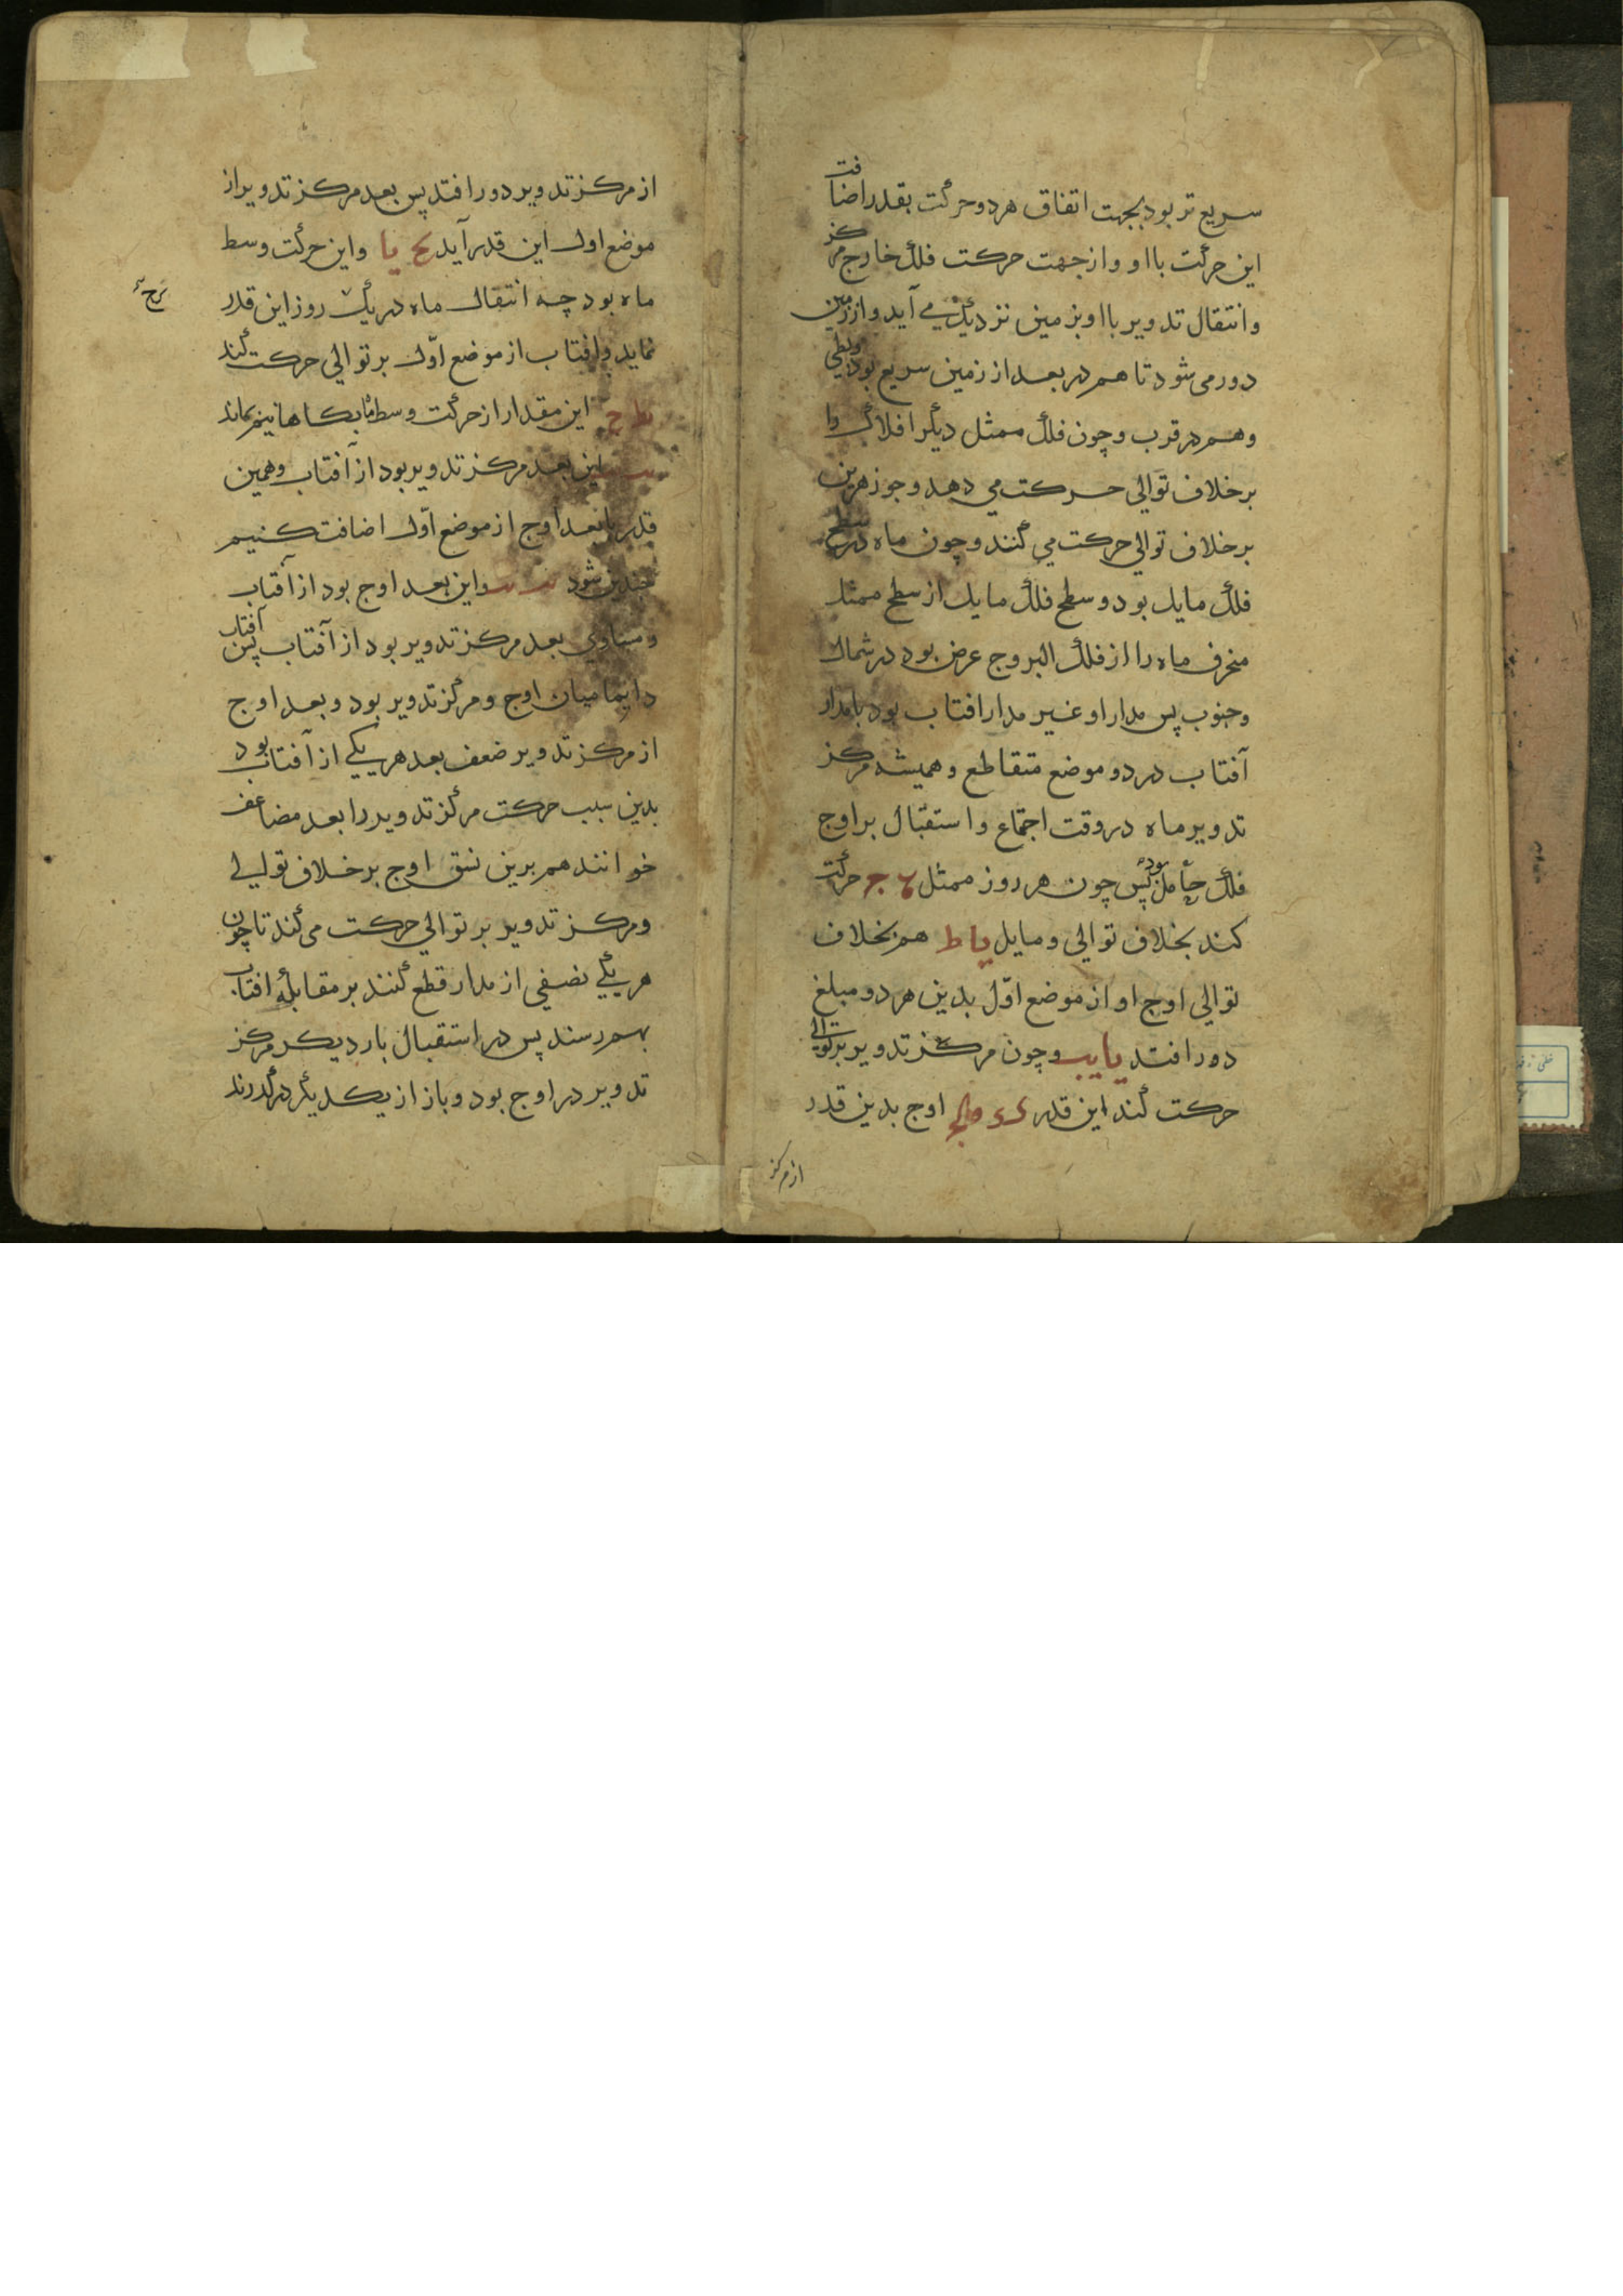 سریع تر بود بجهت اتفاق هر دو حرکت بقدر اضافت
این حرکت با او و از جهت حرکت فلک خارج مرکز
و انتقال تدویر با او بزمین نزدیک می آید و از زمین
دور می شود تا هم در بعد از زمین سریع بود و بطی
و هم در قرب و چون فلک ممثل دیگر افلاک را
برخلاف توالی حرکت می دهد و جوزهرین
برخلاف توالی حرکت می کنند و چون ماه در سطح
فلک مایل بود و سطح فلک مایل از سطح ممثل
منحرف ماه را از فلک البروج عرض بود در شمال
و جنوب پس مدار او غیر مدار افتاب بود با مدار
آفتاب در دو موضع متقاطع و همیشه مرکز
تدویر ماه در وقت اجتماع و استقبال بر اوج
فلک حامل بود پس چون هر روز ممثل ج حرکت
کند بخلاف توالی و مایل یا ط هم بخلاف
توالی اوج او از موضع اوّل بدین هر دو مبلغ
دور افتد یا یب و چون مرکز تدویر بر توالی
حرکت کند این قدر اوج بدین قدر
از مرکز
از مرکز تدویر دور افتد پس بعد مرکز تدویر از
موضع اول این قدر آید یح یا و این حرکت وسط
ماه بود چه انتقال ماه در یک روز این قدر
نماید و افتاب از موضع اوّل بر توالی حرکت کند
نط ح این مقدار از حرکت وسط ماه بکاهانیم بماند
این بعد مرکز تدویر بود از آفتاب و همین
قدر با بعد اوج از موضع اوّل اضافت کنیم
چندین شود و این بعد اوج بود از آفتاب
و مساوی بعد مرکز تدویر بود از آفتاب پس آفتاب
دایما میان اوج و مرکز تدویر بود و بعد اوج
از مرکز تدویر ضعف بعد هر یکی از آفتاب بود
بدین سبب حرکت مرکز تدویر را بعد مضاعف
خوانند هم برین نسق اوج بر خلاف توالی
و مرکز تدویر بر توالی حرکت می کند تا چون
هر یکی نصفی از مدار قطع کنند بر مقابلۀ افتاب
بهم رسند پس در استقبال بار دیکر مرکز
تدویر در اوج بود و باز از یکدیگر درگذرند